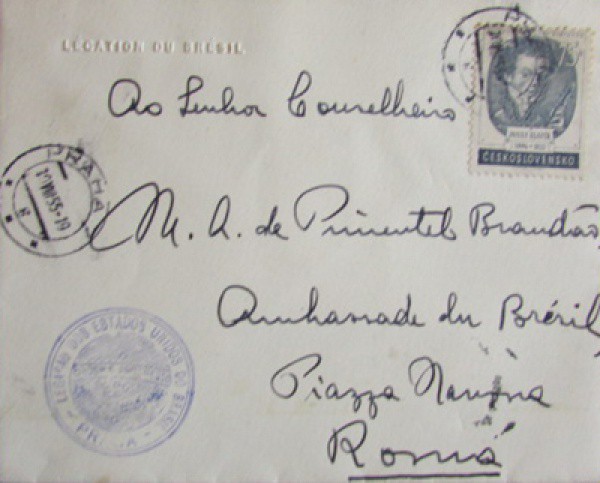 LÉGATION DU BRÉSIL
ČESKOSLOVENSKO
Ao Senhor Conselheiro
PRAHA
M. A. de Pimentel Brandão,
Ambassade du Brésil,
Piazza Navona
Roma
LEGAÇÃO DOS ESTADOS UNIDOS DO BRASIL
PRAGA